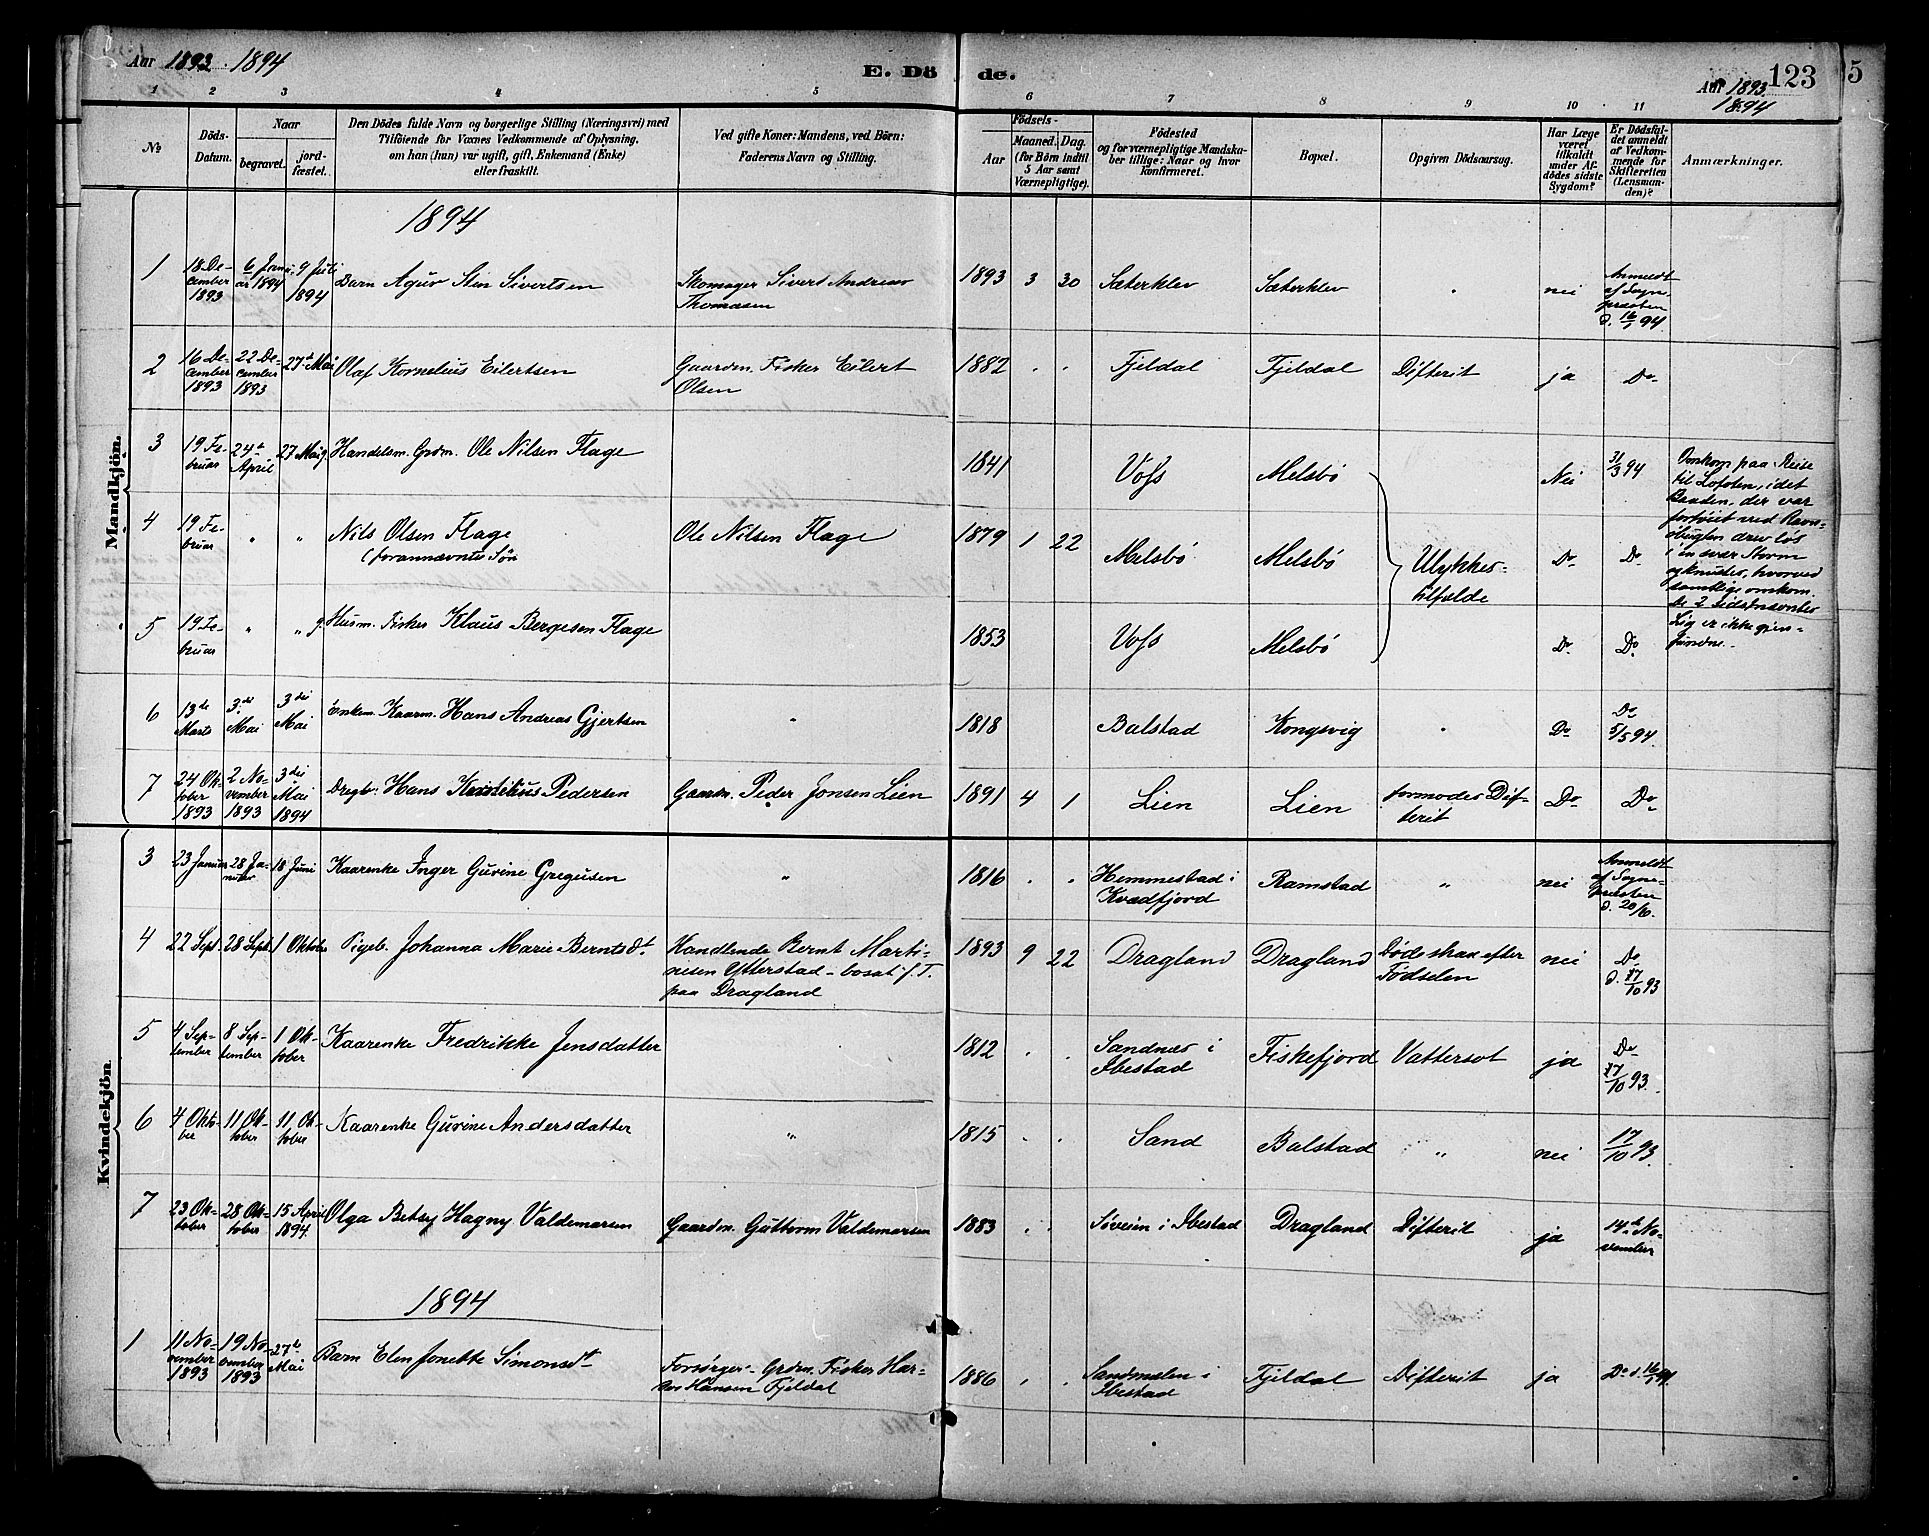 Aar 1893. 1894
E. Dö de.
Aar 1893.
1894
123
5
1 2 3 4 5 6 7 8 9 10 11
№
Döds-
Datum.
Naar
begravet.
jord-
fæstet.
Den Dödes fulde Navn og borgerlige Stilling (Næringsvei) med
Tilföiende for Voxnes Vedkommende af Oplysning,
om han (hun) var ugift, gift, Enkemand (Enke)
eller fraskilt.
Ved gifte Koner: Mandens, ved Börn:
Faderens Navn og Stilling.
Födsels-
Aar
Maaned. Dag.
(for Börn indtil
5 Aar samt
Værnepligtige).
Födested
og for værnepligtige Mandska-
ber tillige: Naar og hvor
konfirmeret.
Bopæl.
Opgiven Dödsaarsag.
Har Læge
været
tilkaldt
under Af-
dödes sidste
Sygdom?
Er Dödsfal-
det anmeldt
af Vedkom-
mende for
Skifteretten
(Lensman-
den)?
Anmærkninger.
Mandkjön.
1894
1
18 De-
cember
1893
6 Janu-
ar 1894
9 Juli
1894
Barn Agur Sten Sivertsen
Skomager Sivert Andreas
Thomassen
1893 3 30 Sæterklev Sæterklev " nei
Anmeldt
af Sogne-
præsten
d. 16/1 94
2
16 De-
cember
1893
22 De-
cember
1893
27de Mai
Olaf Kornelius Eilertsen
Gaardm. Fisker Eilert
Olsen
1882 . . Fjeldal Fjeldal Difterit ja Do
3
19 Fe-
bruar
24de
April
27 Mai
Handelsm. Grdm. Ole Nilsen Flage
1841 Voss Melsbö Nei 31/3 94
4
19 Fe-
bruar
" "
Nils Olsen Flage
(forannævntes Sön
Ole Nilsen Flage
1879 1 22 Melsbö Melsbö
Ulykkes-
tilfælde
Do Do
5
19 Fe-
bruar
" "
g. Husm. Fisker Klaus Bergesen Flage
1853 Voss Melsbö Do Do
Omkom paa Reise
til Lofoten, idet
Baaden, der var
fortöiet ved Ravn-
drev lös
i en svær Storm
og knustes, hvorved
samtlige omkom.
De 2 sidstnævntes
Lig er ikke gjen-
fundne.
6
13de
Marts
3de
Mai
3die
Mai
Enkem. Kaarm. Hans Andreas Gjertsen
"
1818 Balstad Kongsvig " Do
Do
5/5 94.
7
24 Ok-
tober
1893
2 No-
vember
1893
3die
Mai
1894
Dregb. Hans Kornelius Pedersen
Gaardm. Peder Jonsen Lien
1891 4 1 Lien Lien
formodes Dif-
terit
Do Do
Kvindekjön
3
23 Januar
28 Ja-
nuar
18 Juni
Kaarenke Inger Gurine Gregusen
"
1816 . .
Hemmestad i
Kvædfjord
Ramstad " nei
Anmeldt
af Sogne-
præsten
d. 20/6.
4
22 Sept. 28 Sept. 1 Oktober
Pigeb. Johanna Marie Berntsdt.
Handlende Bernt Marti-
nesen Ytterstad - bosat f. T.
paa Dragland
1893 9 22 Dragland Dragland
Döde strax efter
Födselen
nei
Do
d. 17/10 93
5
4 Sep-
tember
8 Sep-
tember
1 Ok-
tober
Kaarenke Fredrikke Jensdatter
1812 . .
Sandnes i
Ibestad
Fiskefjord Vattersot ja
Do
17/10 93.
6
4 Okto-
ber
11 Ok-
tober
11 Ok-
tober
Kaarenke Gurine Andersdatter
"
1815 . . Sand Balstad " nei 17/10 93.
7
23 Ok-
tober
28 Ok-
tober
15 April
1894.
Olga Betsy Hagny Valdemarsen
Gaardm. Guttorm Valdemarsen
1883 . . Söveien i Ibestad Dragland Difterit ja
14de No-
vember
1894
1
11 No-
vember
1893
19 No-
vember
1893
27de
Mai
Barn Elen Jonette Simonsdt
Forsörger: Grdm. Fisker Har-
Hansen Fjeldal
1886 . .
Sandmelen i
Ibestad
Fjeldal Difterit ja Do d. 16/1 94.